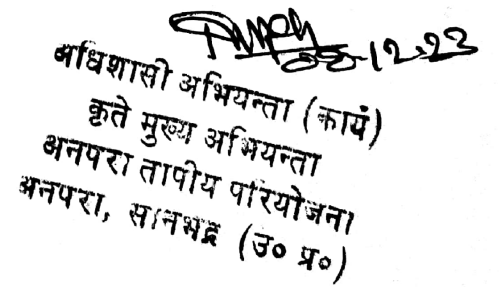 08-12-23
अधिशासी अभियन्ता (कायं)
कृते मुख्य अभियन्ता
अनपरा तापीय परियोजना
अनपरा, सानभद्र (उ० प्र०)